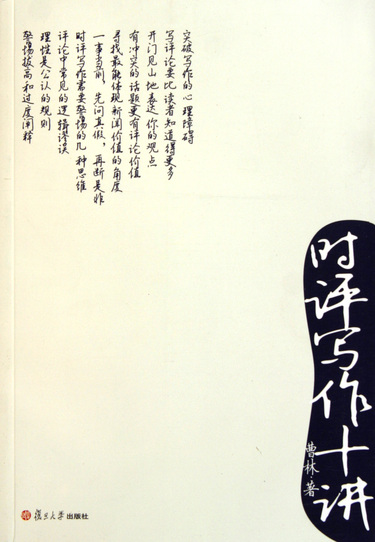 突破写作的心理障碍
写评论要比读者知道得更多
开门见山地表达你的观点
有冲突的话题更有评论价值
寻找最能体现新闻价值的角度
一事当前，先问真假，再断是非
时评写作需要警惕的几种思维
评论中常见的逻辑谬误
理性是公认的规则
警惕拔高和过度阐释
时评写作十讲
曹林·著
复旦大学出版社